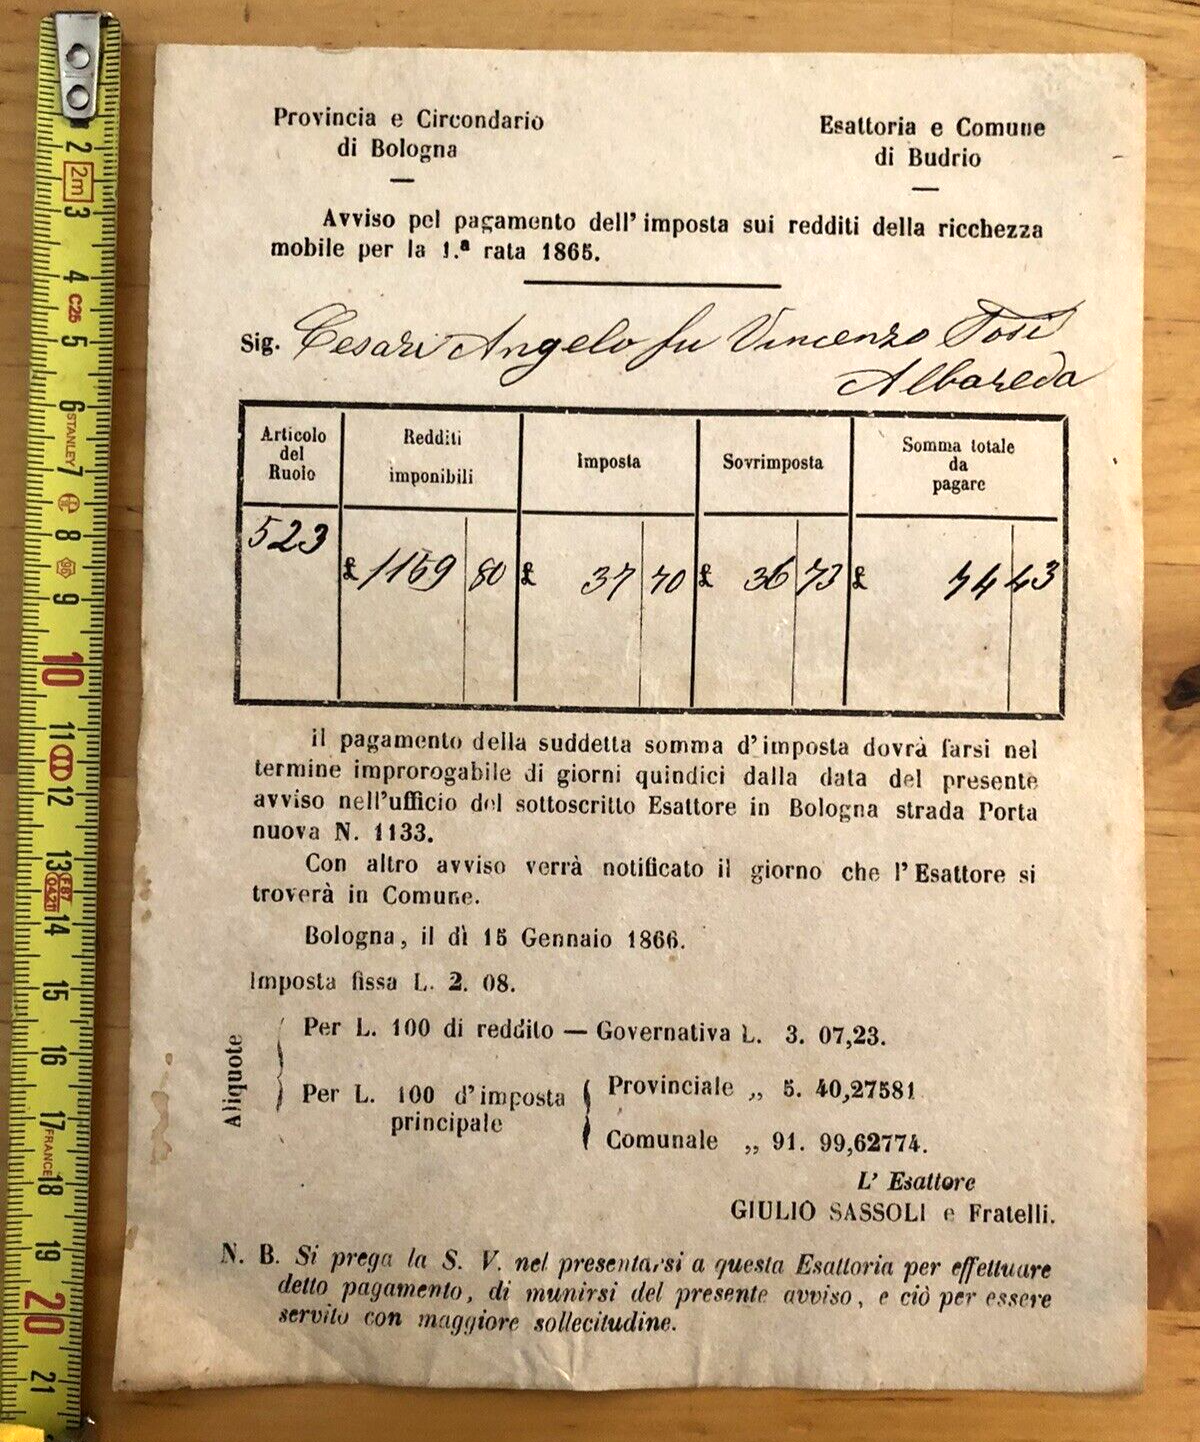 Provincia e Circondario
di Bologna
Esattoria e Comune
di Budrio
Avviso pel pagamento dell' imposta sui redditi della ricchezza
mobile per la 1.ª rata 1865.
Sig. Cesari Angelo fu Vincenzo Tosi
Albareda
Articolo
del
Ruolo
Redditi
imponibili
Imposta
Sovrimposta
Somma totale
da
pagare
523
£ 1159 80 £ 37 70 £ 36 73 £ 74 43
il pagamento della suddetta somma d' imposta dovrà farsi nel
termine improrogabile di giorni quindici dalla data del presente
avviso nell'ufficio del sottoscritto Esattore in Bologna strada Porta
nuova N. 1133.
Con altro avviso verrà notificato il giorno che l' Esattore si
troverà in Comune.
Bologna, il dì 15 Gennaio 1866.
Imposta fissa L. 2. 08.
Aliquote
Per L. 100 di reddito — Governativa L. 3. 07,23.
Per L. 100 d' imposta
principale
Provinciale „ 5. 40,27581
Comunale „ 91. 99,62774.
L' Esattore
GIULIO SASSOLI e Fratelli.
N. B. Si prega la S. V. nel presentarsi a questa Esattoria per effettuare
detto pagamento, di munirsi del presente avviso, e ciò per essere
servito con maggiore sollecitudine.
2
2m
3
4
C25
5
6
STANLEY
7
8
9
10
11
12
13
F87
0421
14
15
16
17
FRANCE
18
19
20
21